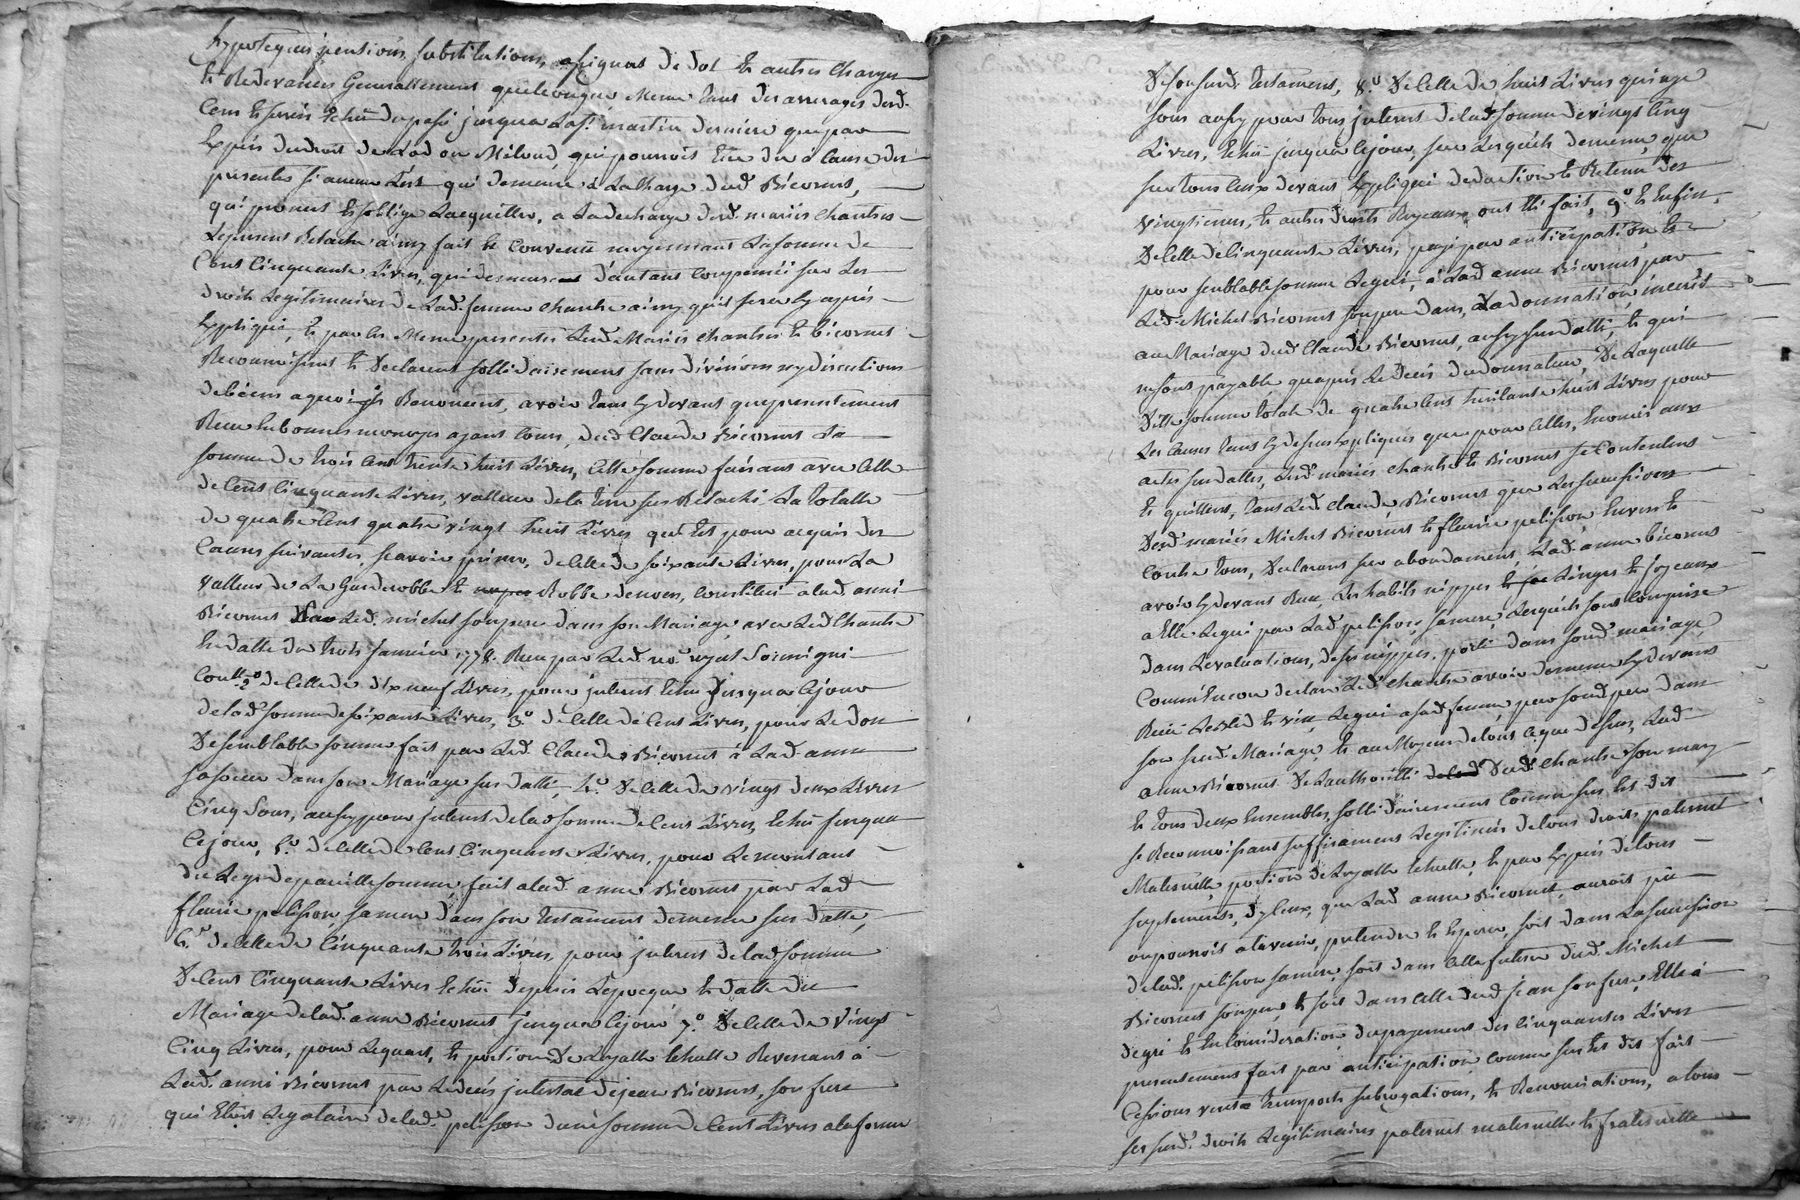 hypoteques pensions, substitutions, assignas de dot et autres charges
et Redevances Generallement quelconques meme tant des arrerages desd.
cens et servis echus du passé jusqua la st. martin derniere que par
exprés du droit de Lod ou Milod, qui pourroit être du à cause des
presentes si aucun l'est qui demeure à la charge dud Bicornet,
qui promet et s'oblige l'acquitter, a la decharge desd. mariés chantre
Lejeune Relache ainsy fait et convenu moyennant la somme de
Cent Cinquante Livres, qui demeurent d'autant compensés sur les
droits Legitimaires de Lad. femme chantre ainsy quil sera cy après
Expliqué, et par les meme presentes Lesd Mariés chantre et bicornet
Reconnoissent et Declarent sollidairement sans division ny discution
de biens a quoi ils Renoncent, avoir tant cy devant que presentement
Receu en bonnes monoyes ayant cours, dud Claude Bicornet La
somme de trois Cent trente huit Livres, Cette somme faisant avec celle
de Cent Cinquante Livres, valleur de la terre sus Relachée La totalle
de quatre Cent quatre vingt huit Livres qui est pour acquit des
Causes suivantes, scavoir primo, de celle de soixante Livres, pour La
valleur de La Garderobbe et Robbe de noces, constitué a lad. anne
Bicornet par Led. michel son pere dans son Mariage avec Led Chantre
En datte du trois janvier 1778. Receu par Led. no.re royal soussigné
Con.llé 2.º de celle de dix neuf Livres, pour interest echu jusqua ce jour
de lad. somme de soixante Livres, 3.º de celle de Cent Livres, pour Le don
De semblable somme fait par Led. Claude Bicornet à Lad anne
sa soeur dans son Mariage sus datté, 4.º De celle de vingt deux Livres
Cinq Sous, aussy pour interest de lad somme de Cent Livres, echu jusqua
Ce jour, 5.º de celle de Cent Cinquante Livres, pour Le montant
du Legs de pareille somme, fait a lad. anne Bicornet par Lad
fleurie pelisson, sa mere dans son testament de meme sus datté,
6.º de celle de Cinquante trois Livres, pour interest de lad somme
De Cent Cinquante Livres echu depuis L'epoque et datte du
Mariage de lad. anne Bicornet jusqua ce jour 7.º De celle de Vingt
Cinq Livres, pour Le quart, et portion De Loyalle echutte Revenant à
Lad. anne Bicornet par Le deces intestat de jean Bicornet, son frere
qui Etoit Legataire de lad. pelisson d'une somme de Cent Livres a la forme
De son susd. testament, 8.º De celle de huit Livres quinze
sous aussy pour tous interest de lad somme de vingt Cinq
Livres, echu jusqua ce jour, sur Lesquels de meme que
sur tous Ceux devant Expliqué deduction et Retenue des
vingtiemes, et autres droits Royeaux ont été fait, 9.º et Enfin,
De celle de Cinquante Livres, payé par anticipation, et
pour semblable somme Leguée, à Lad anne Bicornet par
Led. Michel Bicornet son pere dans, La donnation inserée
au Mariage dud Claude Bicornet, aussy sus datté, et qui
nest payable quapres Le Deces du donnateur, De Laquelle
Ditte somme totale de quatre Cent huitante huit Livres pour
Les Causes tant cy dessus Expliqués que pour celles, Enoncés aux
actes sus dattés, Lesd. mariés chantre et Bicornet se Contentent
et quittent, tant Led claude Bicornet que Les successions
Desd mariés Michel Bicornet et fleurie pelisson, Envers et
Contre tous, Declarent par abondament, Lad. anne bicornet
avoir cy devant Receu Les habits nippes Linges et joyeaux
a Elle Legué par Lad. pelisson, sa mere, Lesquels sont Comprise
dans L'evaluation, de ses nippes, porté dans sond. mariage
Comme Encore declare Led. chantre avoir de meme cy devant
Receu Le bled et vin Legué a sad femme par sond. pere dans
son susd. Mariage, et au Moyen de tout ce que dessus, Lad
anne Bicornet De L'authorité dud. chantre son mary
et tous deux Ensembles, sollidairement comme sus Est dit
se Reconnoissant suffisament Legitimés de tous droits paternel
Maternelle, portion de Loyalle echutte, et par Exprés de tous
supplements, d'yceux, que Lad anne Bicornet, auroit pu
ou pourroit a l'avenir, pretendre et Esperer, soit dans La succession
de lad. pelisson sa mere, soit dans celle future dud. Michel
Bicornet son pere, et soit dans celle dud jean son frere, Elle à
degré et En Consideration, du payement des Cinquantes Livres
presentement fait par anticipation comme sus Est dit fait
Cession vente transports subrogations, et Renonciations, a tous
ses susd. droits Legitimaires paternel maternelle et fraternelle